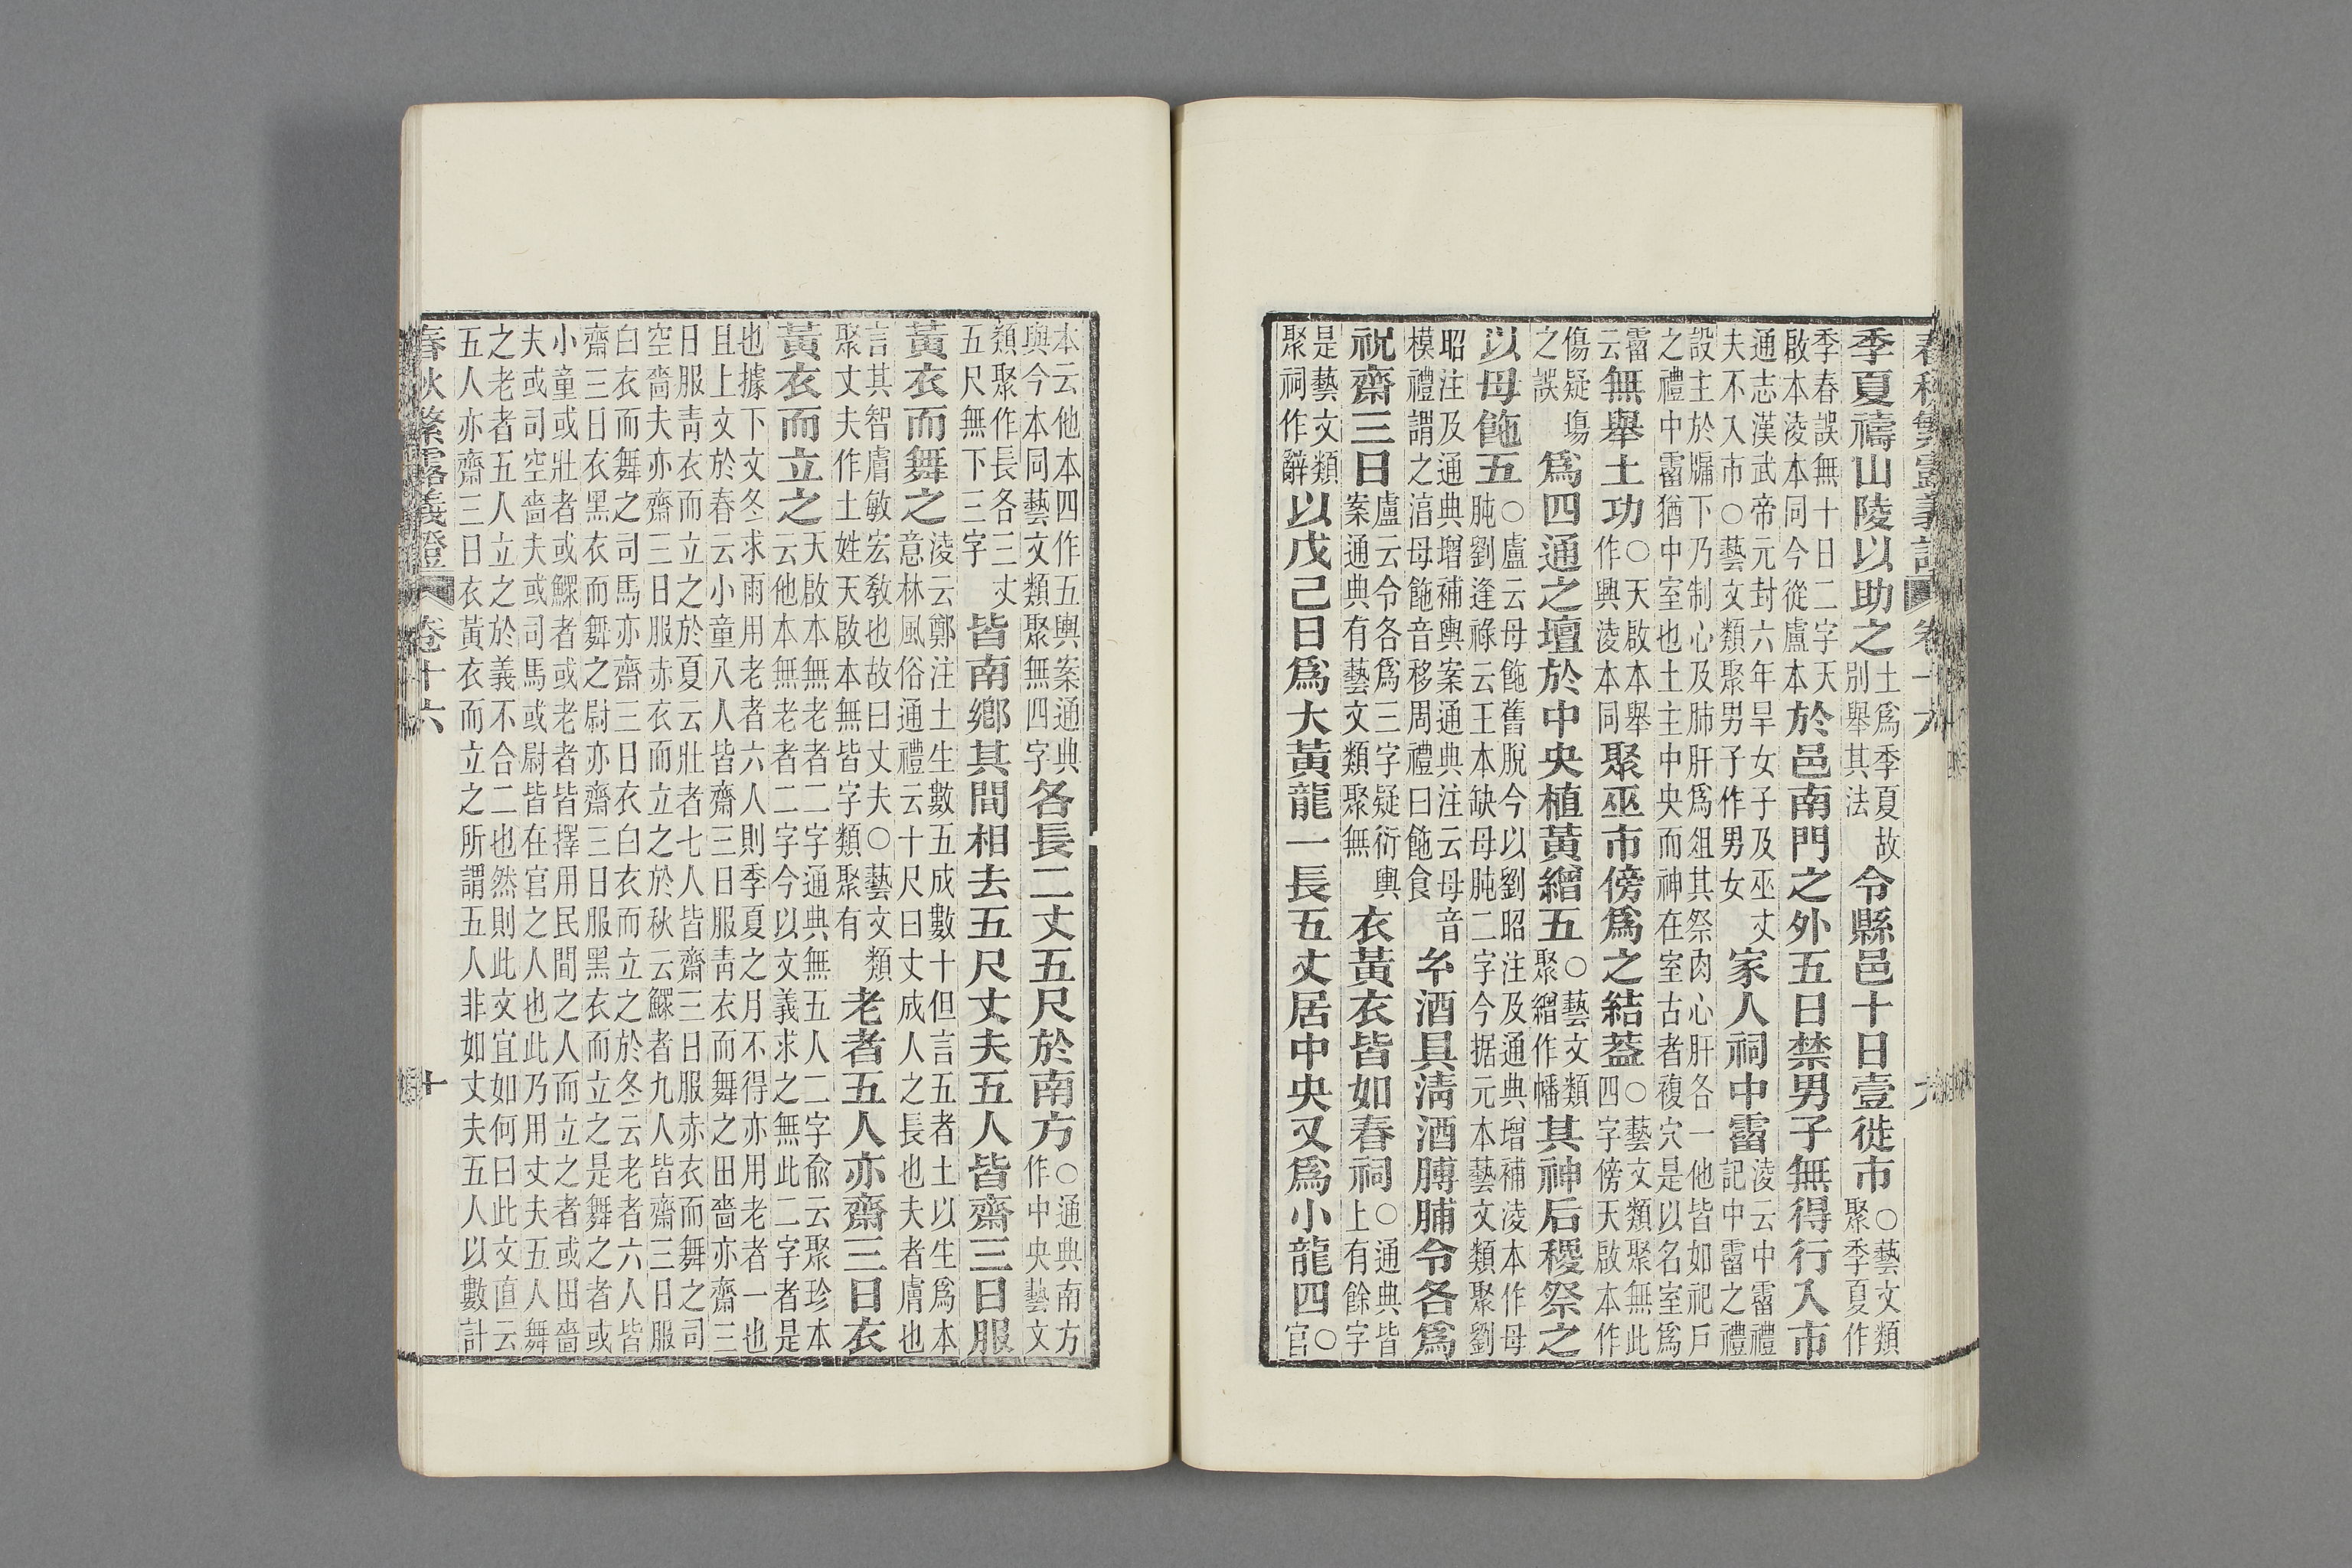 季夏禱山陵以助之土爲季夏故別舉其法令縣邑十日壹徙市○藝文類聚季夏作
季春誤無十日二字天啟本淩本同今從盧本於邑南門之外五日禁男子無得行入市
通志漢武帝元封六年旱女子及巫丈夫不入市○藝文類聚男子作男女家人祠中霤淩云中霤禮記中霤之禮
設主於牖下乃制心及肺肝爲俎其祭肉心肝各一他皆如祀戶之禮中霤猶中室也土主中央而神在室古者複穴是以名室爲
霤云無舉土功○天啟本舉作興淩本同聚巫市傍爲之結蓋○藝文類聚無此四字傍天啟本作
傷疑塲之誤爲四通之壇於中央植黃繒五○藝文類聚繒作幡其神后稷祭之
以母五○盧云母舊脫今以劉昭注及通典增補淩本作母肫劉逢祿云王本缺母肫二字今据元本藝文類聚劉
昭注及通典增補輿案通典注云母音模禮謂之湻母音移周禮曰食玄酒具淸酒膊脯令各爲
祝齋三日盧云令各爲三字疑衍輿案通典有藝文類聚無衣黃衣皆如春祠○通典皆上有餘字
是藝文類聚祠作辭以戊己日爲大黃龍一長五丈居中央又爲小龍四○官
本云他本四作五輿案通典與今本同藝文類聚無四字各長二丈五尺於南方○通典南方作中央藝文
類聚作長各三丈五尺無下三字皆南鄉其間相去五尺丈夫五人皆齋三日服
黃衣而舞之淩云鄭注土生數五成數十但言五者土以生爲本意林風俗通禮云十尺曰丈成人之長也夫者膚也
言其智膚敏宏敎也故曰丈夫○藝文類聚丈夫作土姓天啟本無皆字類聚有老者五人亦齋三日衣
黃衣而立之天啟本無老者二字通典無五人二字俞云聚珍本云他本無老者二字今以文義求之無此二字者是
也據下文冬求雨用老者六人則季夏之月不得亦用老者一也且上文於春云小童八人皆齋三日服靑衣而舞之田嗇亦齋三
日服靑衣而立之於夏云壯者七人皆齋三日服赤衣而舞之司空嗇夫亦齋三日服赤衣而立之於秋云鰥者九人皆齋三日服
白衣而舞之司馬亦齋三日衣白衣而立之於冬云老者六人皆齋三日衣黑衣而舞之尉亦齋三日服黑衣而立之是舞之者或
小童或壯者或鰥者或老者皆擇用民間之人而立之者或田嗇夫或司空嗇夫或司馬或尉皆在官之人也此乃用丈夫五人舞
之老者五人立之於義不合二也然則此文宜如何曰此文直云五人亦齋三日衣黃衣而立之所謂五人非如丈夫五人以數計
春秋繁露義證 卷十六 十